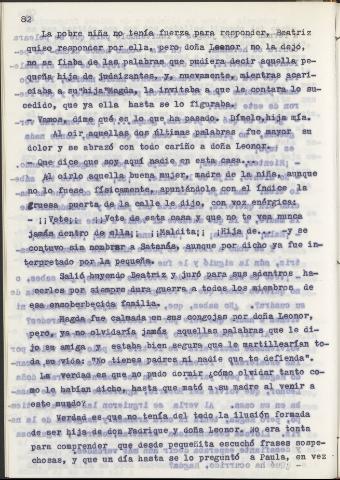 82
La pobre niña no tenía fuerza para responder, Beatriz
quiso responder por ella, pero doña Leonor no la dejó,
no se fiaba de las palabras que pudiera decir aquella pe-
queña hija de judaizantes, y, nuevamente, mientras acari-
ciaba a su "hija" Magda, la invitaba a que le contara lo su-
cedido, que ya ella hasta se lo figuraba.
- Vamos, dime qué es lo que ha pasado. Dímelo, hija mía.
Al oir aquellas dos últimas palabras fue mayor su
dolor y se abrazó con todo cariño a doña Leonor.
- Que dice que soy aquí nadie en esta casa...
Al oirlo aquella buena mujer, madre de la niña, aunque
no lo fuese físicamente, apuntándolo con el índice la
gruesa puerta de la calle le dijo, con voz enérgica:
- ¡¡Vete¡¡ ¡¡Vete de esta casa y que no te vea nunca
jamás dentro de ella¡¡ ¡Maldita¡¡ ¡Hija de... -y se
contuvo sin nombrar a Satanás, aunque por dicho ya fue in-
terpretado por la pequeña.
Salió huyendo Beatriz y juró para sus adentros ha-
cerles por siempre dura guerra a todos los miembros de
esa ensoberbecida familia.
Magda fue calmada en sus congojas por doña Leonor,
pero, ya no olvidaría jamás aquellas palabras que le di-
jo su amiga y estaba bien segura que le martillearían to-
da su vida: "No tienes padres ni nadie que te defienda".
La verdad es que no pudo dormir ¿cómo olvidar tanto co-
mo le habían dicho, hasta que mató a su madre al venir a
este mundo?
Verdad es que no tenía del todo la ilusión formada
de ser hija de don Fadrique y doña Leonor. No era tonta
para comprender que desde pequeñita escuchó frases sospe-
chosas, y que un día hasta se lo preguntó a Paula, en vez